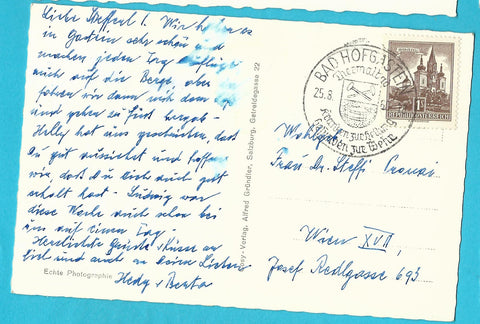 Liebe Stefferl! Wir haben es
in Gastein sehr schön und
machen jeden Tag Ausflüge
auf die Berge, aber
fahren wir dann mit dem
und gehen zu Fuss bergab.
Helly hat uns geschrieben, dass
Du gut aussiehst und hoffen
wir, dass Du Dich auch gut
erholt hast. Ludwig war
diese Woche auch schon bei
uns auf einen Tag.
Herzlichste Grüsse + Küsse an
Dich und auch an Deine Lieben
Hedy + Berta
Echte Photographie
Cosy-Verlag, Alfred Gründler, Salzburg, Getreidegasse 22
BAD HOFGASTEIN
Thermalbad
25.8.
Gesunden zur Wonne
REPUBLIK ÖSTERREICH
Wohlgeb
Frau Dr. Steffi
Wien XVII
Josef Redlgasse 693